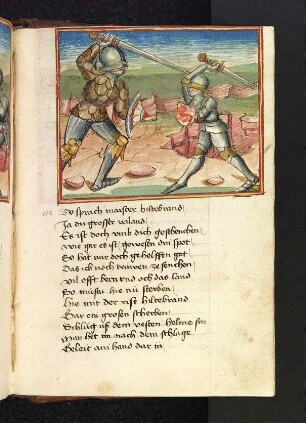 Do sprach maister hiltebrand
Ja du grosser valand
Es ist doch vmb dich geschenchen
wie gar es ist gewesen ein spot
So hat mir doch geholffen got
Das ich noch
vil offt bern vnd och das land
So mustu hie nü sterben
hie mit der rist hiltebrand
Gar ein grosen scherben
Schlůg vf dem vesten helme sin
Man het im nach dem schlage
Geleit ain hand dar in